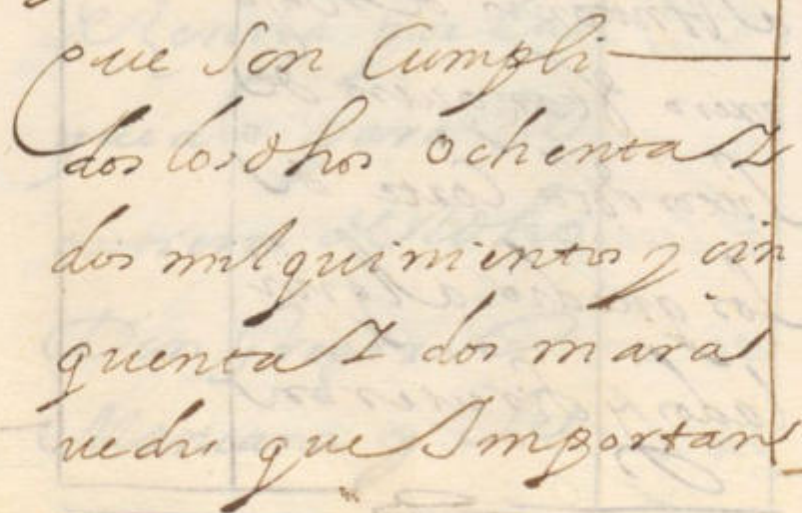 que son Cumpli
dos los dhos ochenta Y
dos mil quinientos y cin
quenta Y dos mara
vedis que Importan